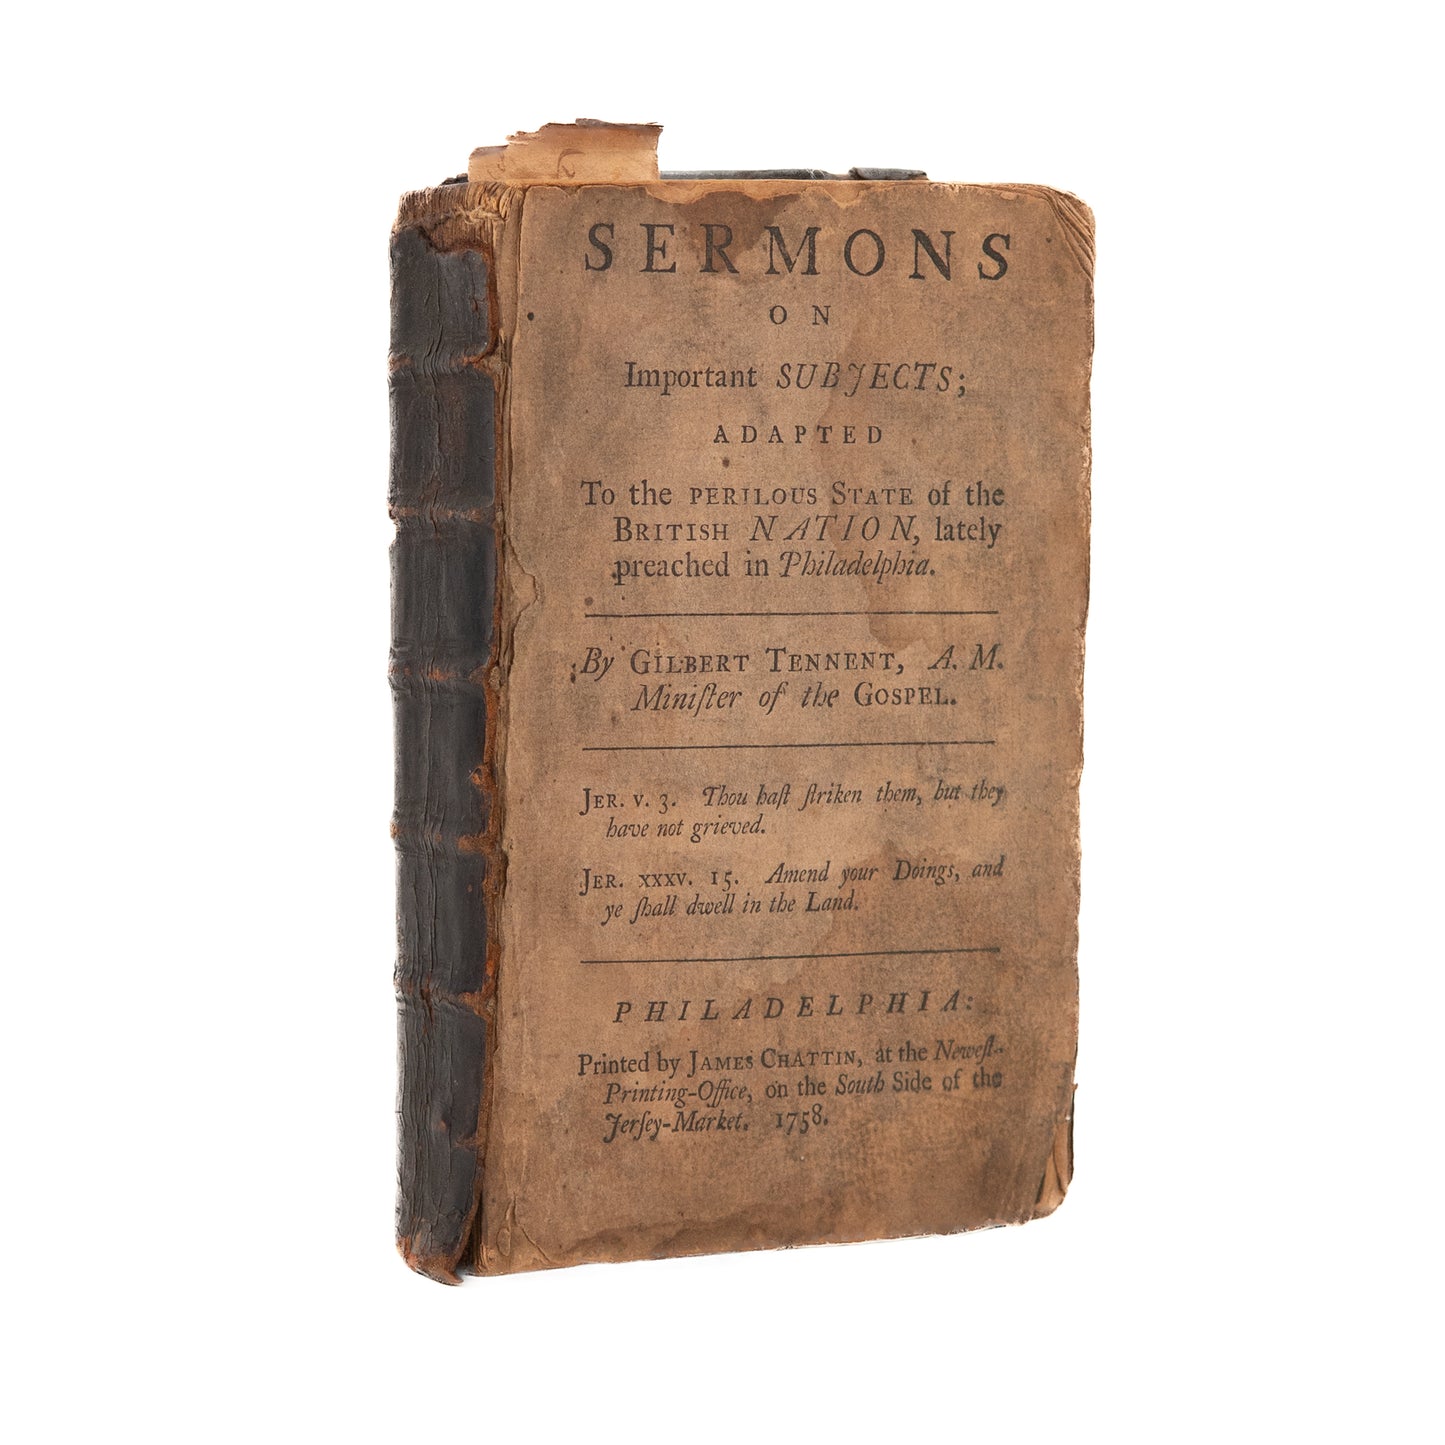 SERMONS
ON
Important SUBJECTS;
ADAPTED
To the PERILOUS STATE of the
BRITISH NATION, lately
preached in Philadelphia.
By GILBERT TENNENT, A. M.
Miniſter of the GOSPEL.
JER. V. 3. Thou haſt ſtriken them, but they
have not grieved.
JER. XXXV. 15. Amend your Doings, and
ye ſhall dwell in the Land.
PHILADELPHIA:
Printed by JAMES CHATTIN, at the Neweſt-
Printing-Office, on the South Side of the
Jerſey-Market. 1758.